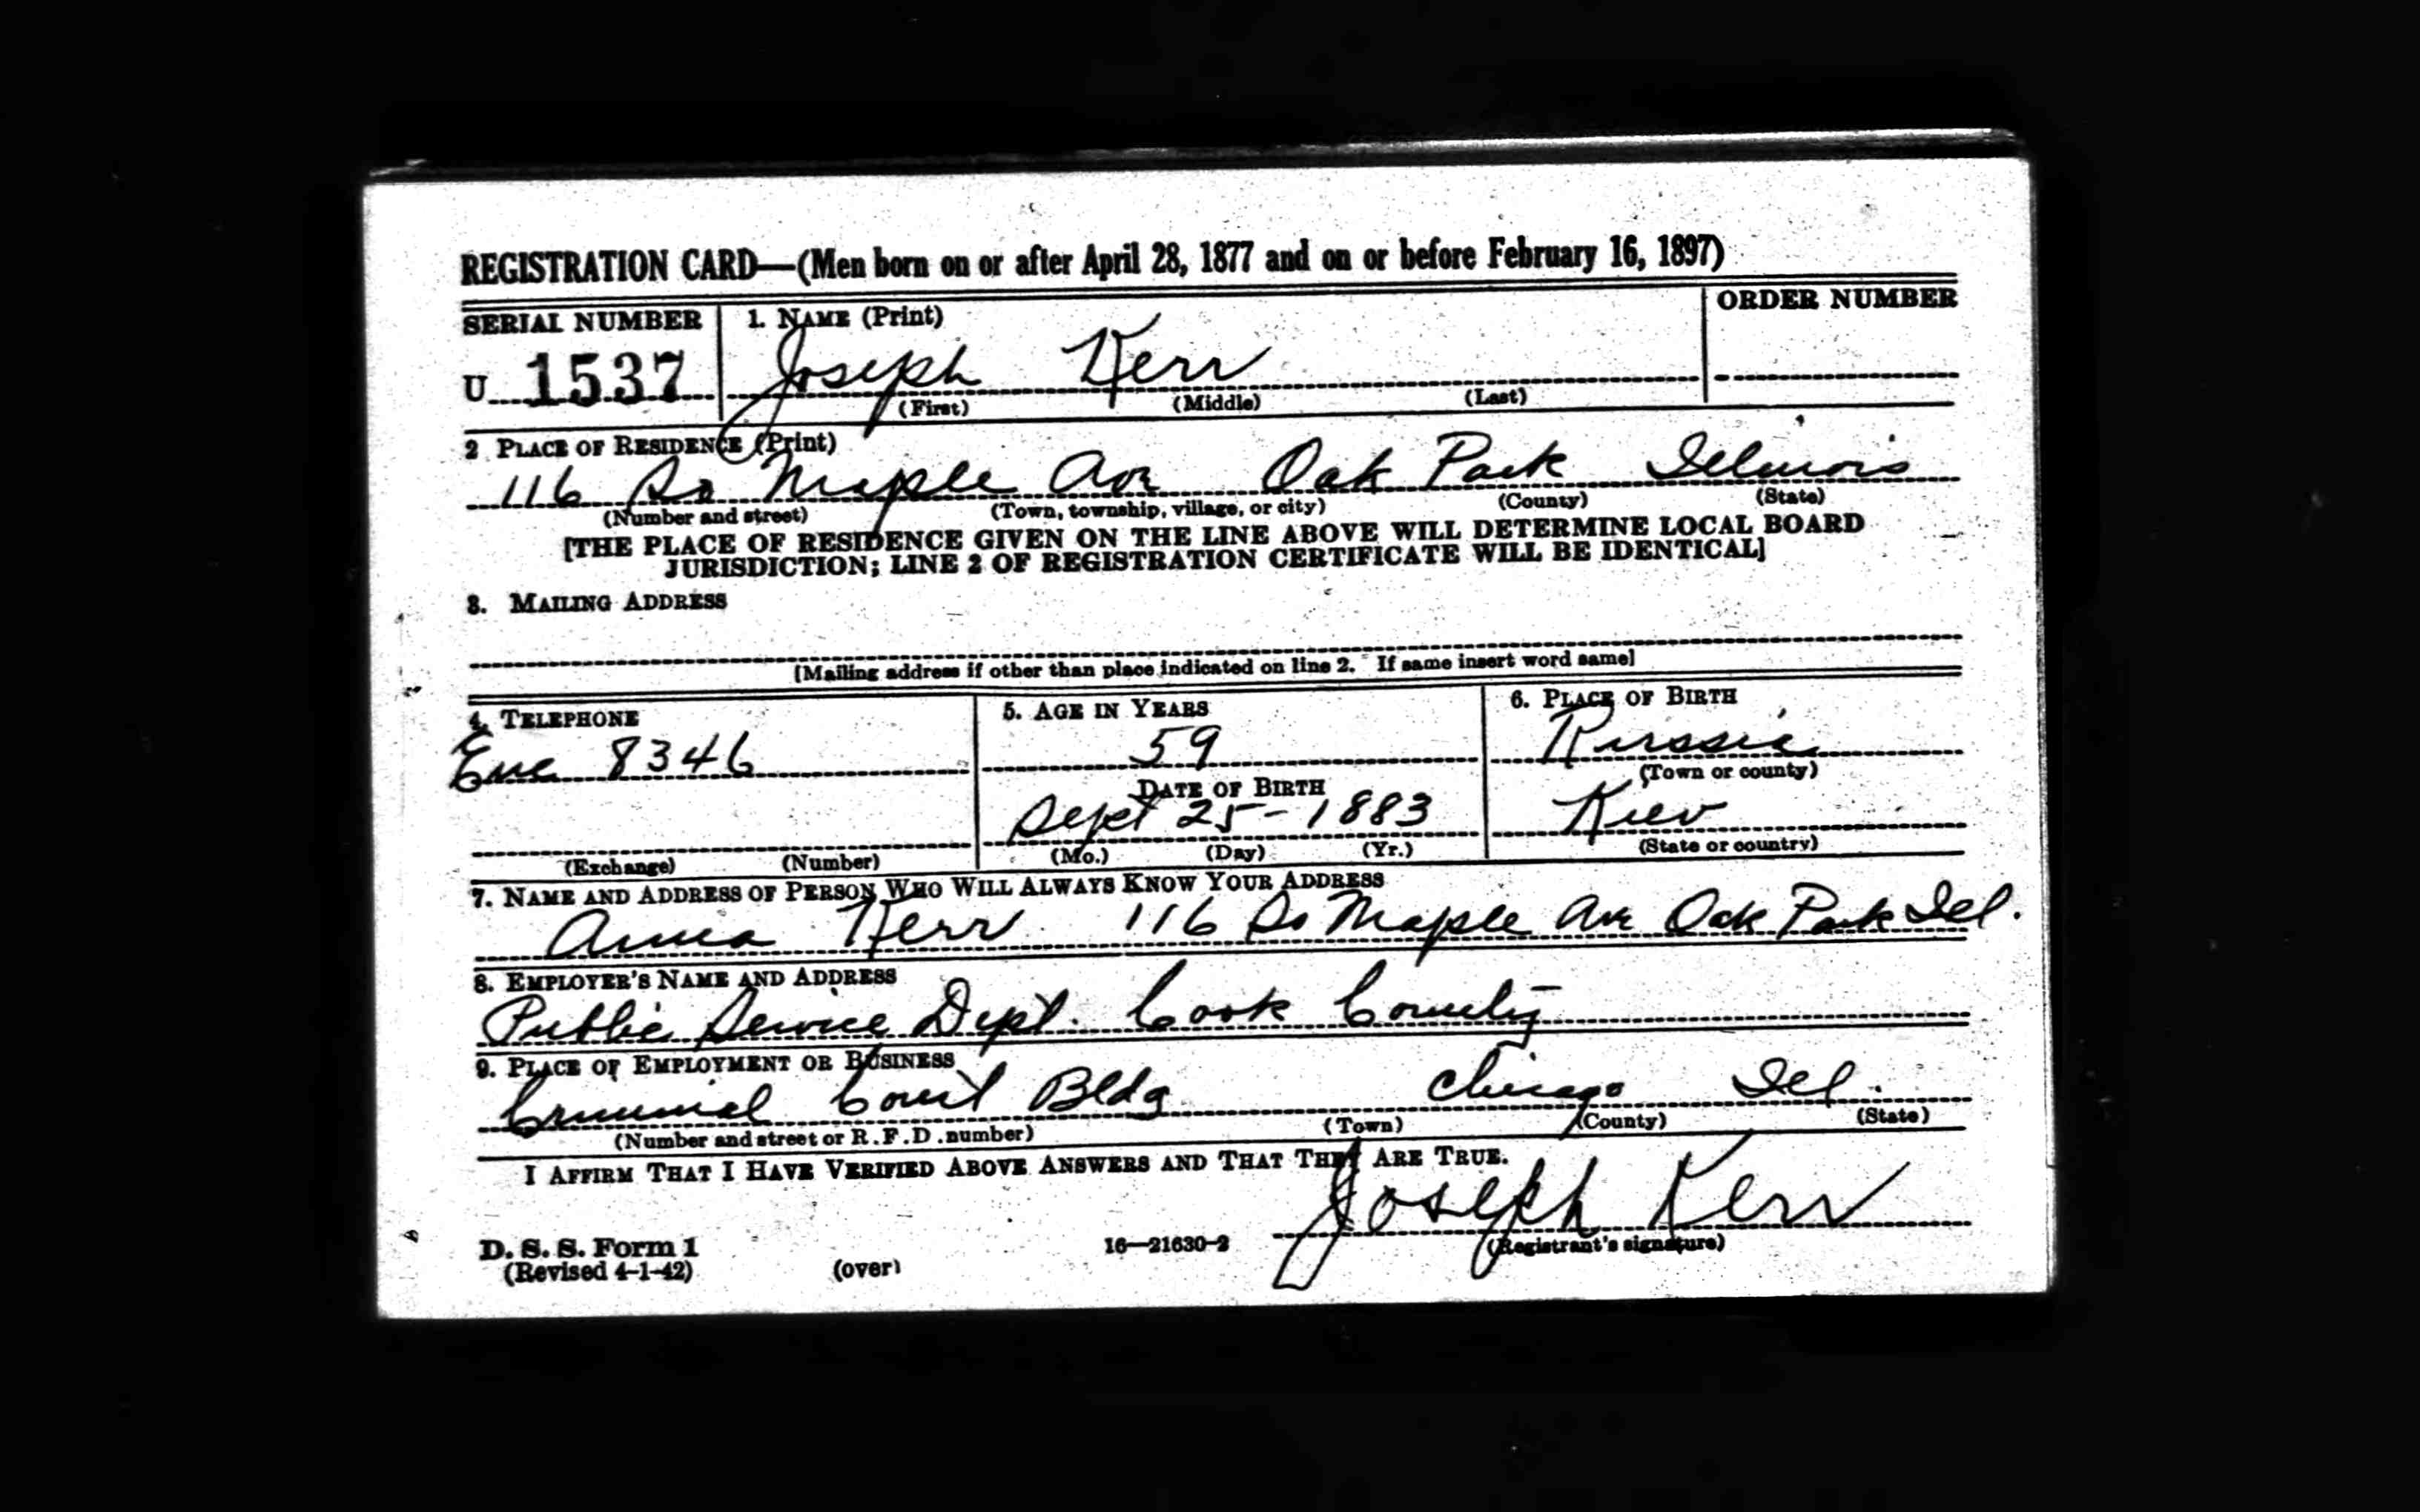 REGISTRATION CARD—(Men born on or after April 28, 1877 and on or before February 16, 1897)
SERIAL NUMBER 1. NAME (Print) ORDER NUMBER
U 1537 Joseph Kerr
(First) (Middle) (Last)
2 PLACE OF RESIDENCE (Print)
116 So Maple Ave Oak Park Illinois
(Number and street) (Town, township, village, or city) (County) (State)
[THE PLACE OF RESIDENCE GIVEN ON THE LINE ABOVE WILL DETERMINE LOCAL BOARD
JURISDICTION; LINE 2 OF REGISTRATION CERTIFICATE WILL BE IDENTICAL]
3. MAILING ADDRESS
[Mailing address if other than place indicated on line 2. If same insert word same]
4. TELEPHONE 5. AGE IN YEARS 6. PLACE OF BIRTH
8346 59 Russia
(Town or county)
DATE OF BIRTH
Sept 25-1883 Kiev
(Exchange) (Number) (Mo.) (Day) (Yr.) (State or country)
7. NAME AND ADDRESS OF PERSON WHO WILL ALWAYS KNOW YOUR ADDRESS
Anna Kerr 116 So Maple Ave Oak Park Ill.
8. EMPLOYER'S NAME AND ADDRESS
Public Service Dept. Cook County
9. PLACE OF EMPLOYMENT OR BUSINESS
Criminal Court Bldg Chicago Ill.
(Number and street or R.F.D. number) (Town) (County) (State)
I AFFIRM THAT I HAVE VERIFIED ABOVE ANSWERS AND THAT THEY ARE TRUE.
Joseph Kerr
D. S. S. Form 1 16—21630-2 (Registrant's signature)
(Revised 4-1-42) (over)